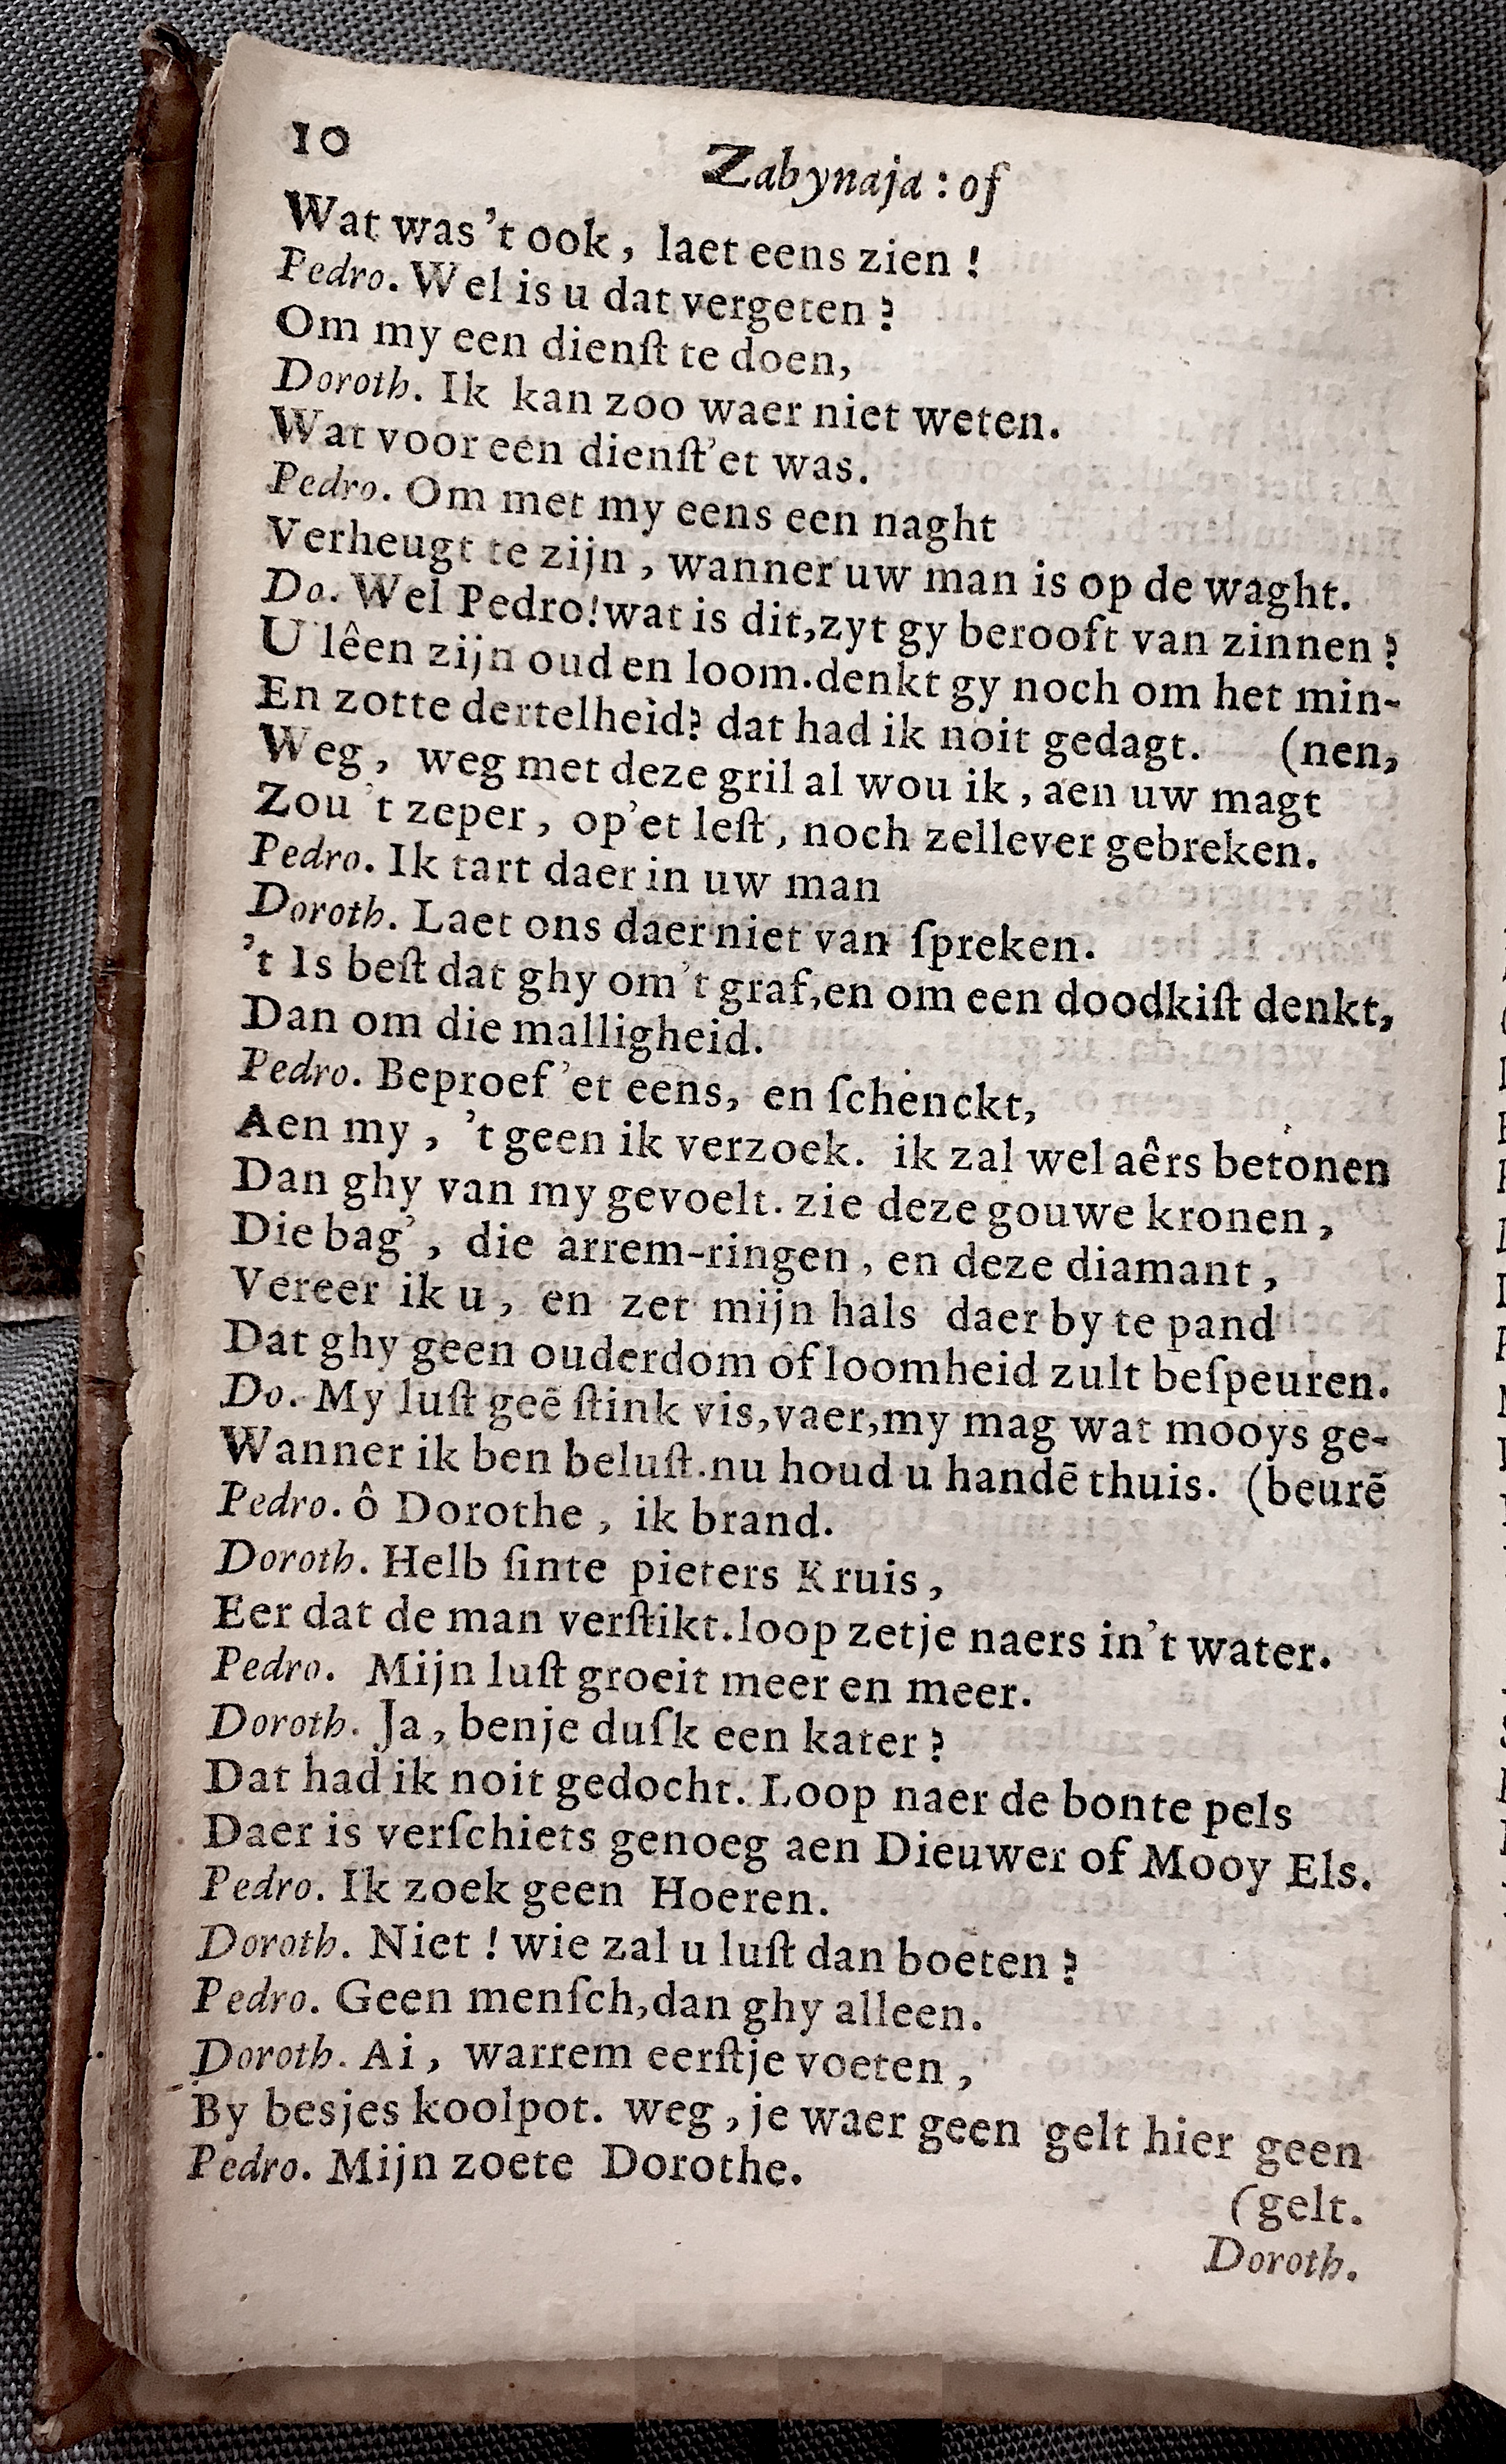 10
Zabynaja : of
Wat was 't ook, laet eens zien !
Pedro. Wel is u dat vergeten ?
Om my een dienſt te doen,
Doroth. Ik kan zoo waer niet weten.
Wat voor een dienſt'et was.
Pedro. Om met my eens een naght
Verheugt te zijn, wanner uw man is op de waght.
Do. Wel Pedro!wat is dit,zyt gy berooft van zinnen ?
U lêen zijn oud en loom.denkt gy noch om het min-
En zotte dertelheid? dat had ik noit gedagt. (nen,
Weg, weg met deze gril al wou ik, aen uw magt
Zou 't zeper, op'et leſt, noch zellever gebreken.
Pedro. Ik tart daer in uw man
Doroth. Laet ons daer niet van ſpreken.
't Is beſt dat ghy om 't graf,en om een doodkiſt denkt,
Dan om die malligheid.
Pedro. Beproef 'et eens, en ſchenckt,
Aen my, 't geen ik verzoek. ik zal wel aêrs betonen
Dan ghy van my gevoelt. zie deze gouwe kronen,
Die bag', die arrem-ringen, en deze diamant,
Vereer ik u, en zet mijn hals daer by te pand
Dat ghy geen ouderdom of loomheid zult beſpeuren.
Do. My luſt geē ſtink vis,vaer,my mag wat mooys ge-
Wanner ik ben beluſt.nu houd u handē thuis. (beurē
Pedro. ô Dorothe, ik brand.
Doroth. Helb ſinte pieters Kruis,
Eer dat de man verſtikt.loop zetje naers in't water.
Pedro. Mijn luſt groeit meer en meer.
Doroth. Ja, benje duſk een kater ?
Dat had ik noit gedocht. Loop naer de bonte pels
Daer is verſchiets genoeg aen Dieuwer of Mooy Els.
Pedro. Ik zoek geen Hoeren.
Doroth. Niet ! wie zal u luſt dan boeten ?
Pedro. Geen menſch,dan ghy alleen.
Doroth. Ai, warrem eerſtje voeten,
By besjes koolpot. weg, je waer geen gelt hier geen
Pedro. Mijn zoete Dorothe.
(gelt.
Doroth.